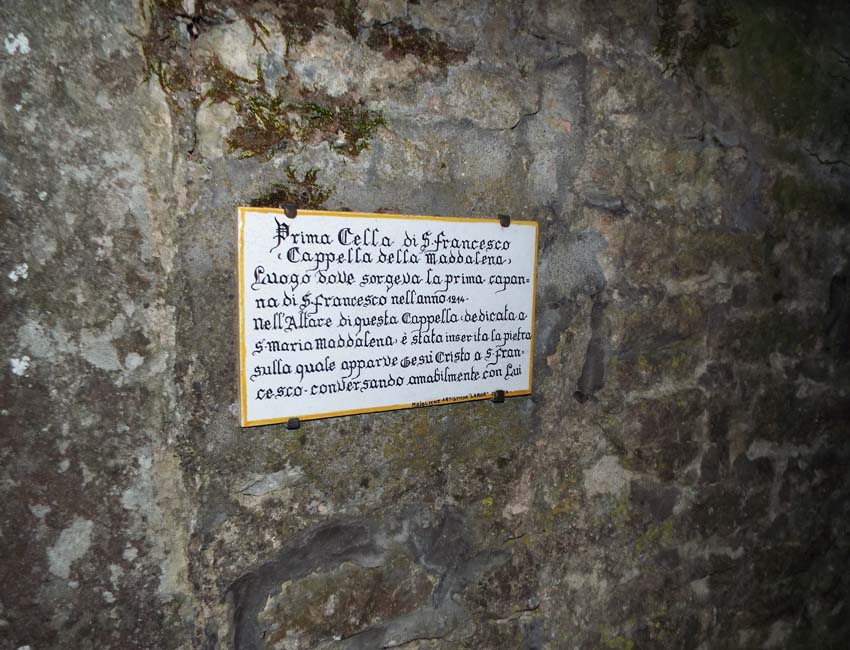 Prima Cella di S. Francesco
(Cappella della Maddalena)
Luogo dove sorgeva la prima capan=
na di S. Francesco nell'anno 1214.
nell'Altare di questa Cappella, dedicata a
S. Maria Maddalena, è stata inserita la pietra
sulla quale apparve Gesù Cristo a S. Fran-
cesco. conversando amabilmente con Lui
MAIOLICHE ARTISTICHE "LABOR"